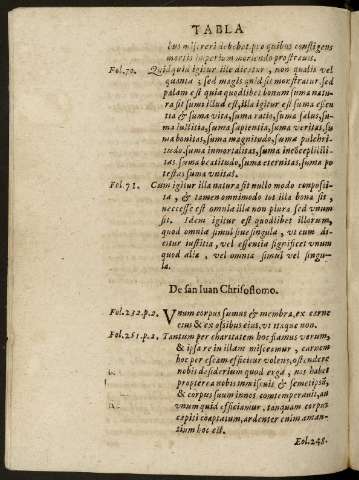 TABLA
bus misereri debebet, pro quibus confligens
mortis imperium moriendo prostrauit.
Fol.70. Quidquid igitur ille dicetur, non qualis vel
quanta; sed magis quid sit monstratur. sed
palam est quia quodlibet bonum suma natu
ra sit sumū illud est, illa igitur est suma essen
tia & suma vita, suma ratio, suma salus, su-
ma iustitia, suma sapientia, suma veritas, su
ma bonitas, suma magnitudo, suma pulchri-
tudo, suma inmortalitas, suma
tas, suma beatitudo, suma eternitas, suma po
testas suma vnitas.
Fol.71. Cum igitur illa natura sit nullo modo conposi
ta, & tamen omnimodo tot illa bona sit,
neccesse est omnia illa non plura sed vnum
sit. Idem igitur est quodlibet illorum,
quod omnia simul siue singula, vt cum di-
citur iustitia, vel essentia significet vnum
quod alia, vel omnia simul vel singu-
la.
De san Iuan Chrisostomo.
Fol.232.p.2. Vnum corpus sumus & membra, ex carne
eius & ex ossibus eius, vt itaque non
Fol.261.p.2. Tantum per charitatem hoc fiamus verum,
& ipsa re in illam misceamur, carnem
hoc per escam efficitur volens, ostendere
nobis desiderium quod erga, nos habet
propterea nobis inmiscuit & semetipsū,
& corpus suum in nos contemperauit, aū
vnum quid efficiamur, tanquam corpus
capiti coaptatum, ardenter enim aman-
tium hoc est.
Fol.248.